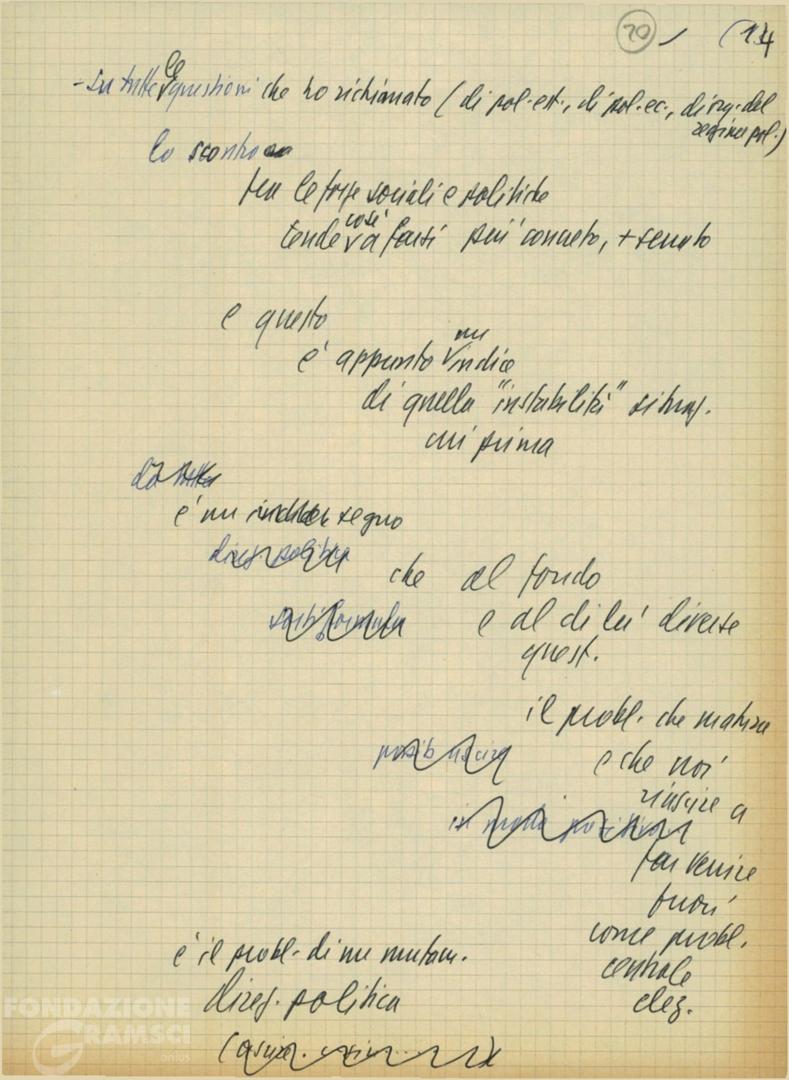 20 (14
- Su tutte le questioni che ho richiamato (di pol. est., di pol. ec., di rig. del
regime pol.)
lo scontro
tra le forze sociali e politiche
tende così a farsi più concreto, + serrato
e questo
è appunto un indice
di quella "instabilità" situaz.
cui prima
da tutte
è un segno
direz. politica
che al fondo
e al di là diverse
quest.
il probl. che matura
possib uscire
e che noi
riuscire a
in modo positivo
far venire
fuori
come probl.
centrale
elez.
è il probl. di un mutam.
direz. politica
FONDAZIONE
GRAMSCI
onlus